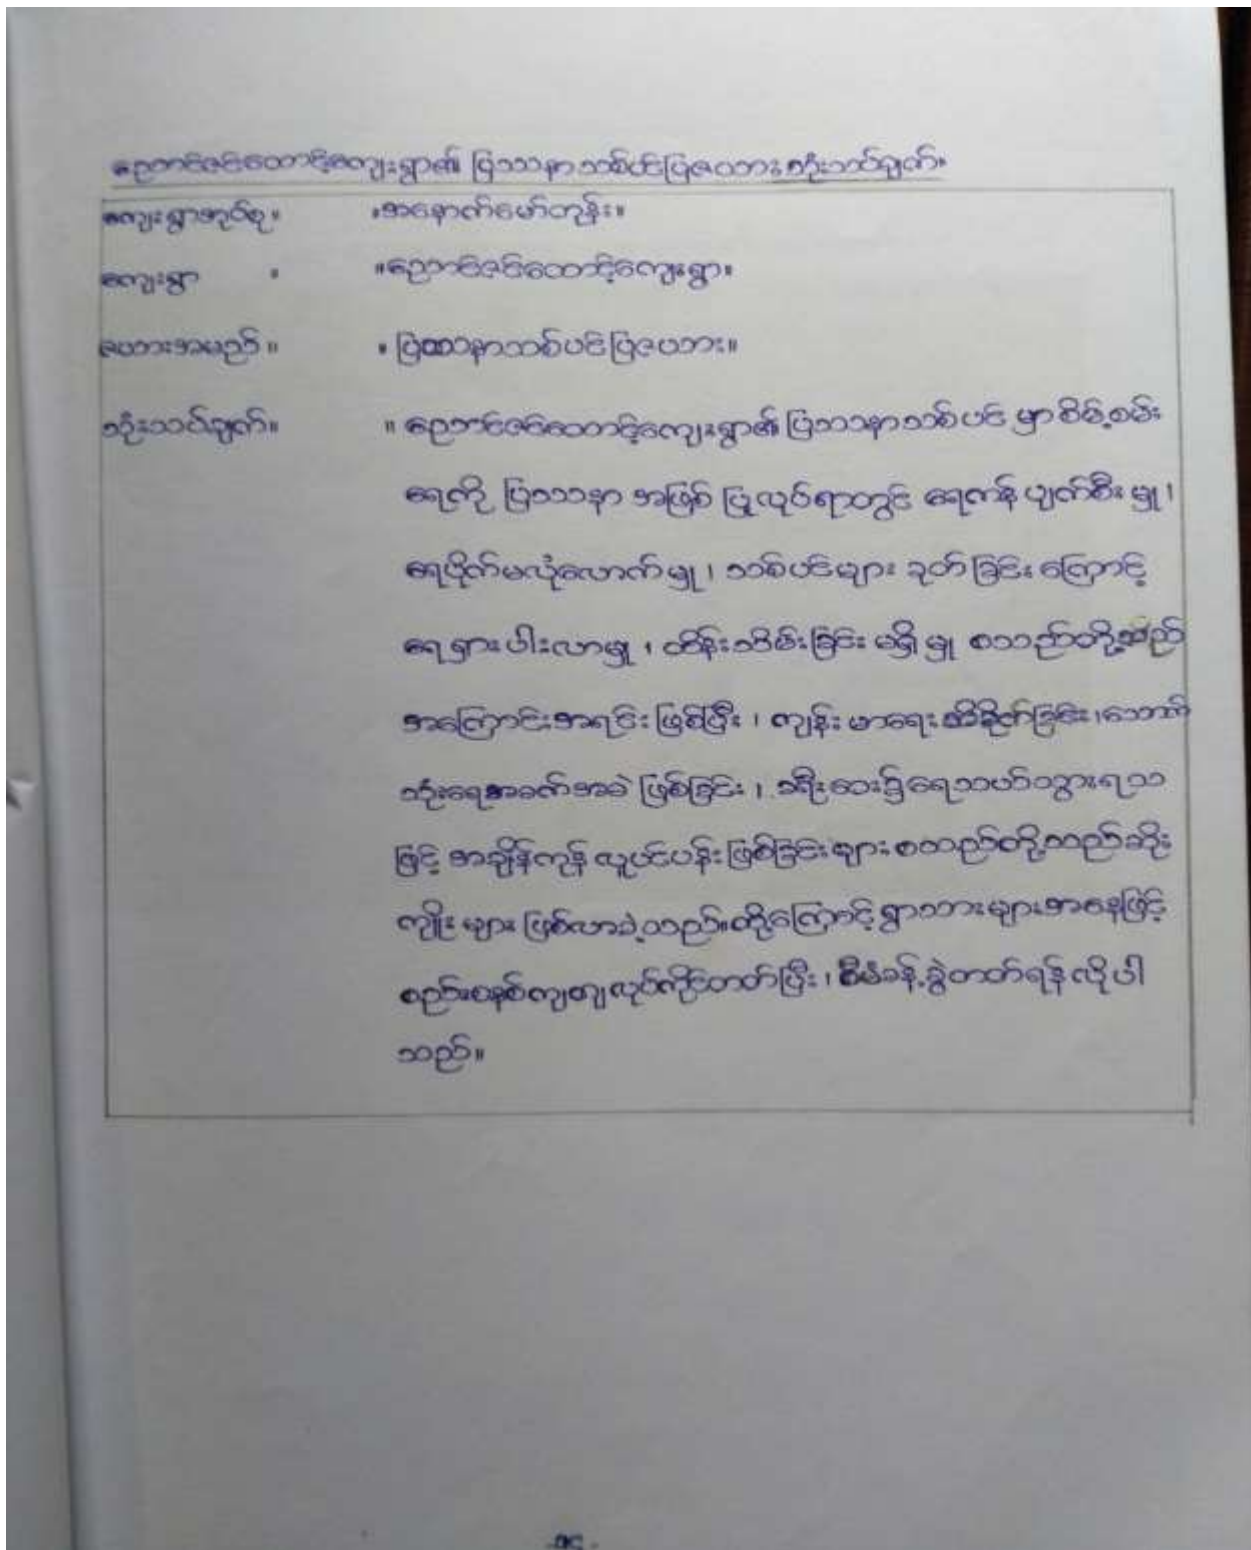 ညောင်ဇင်ထောင့်ကျေးရွာ၏ ပြဿနာသစ်ပင်ပြဇယား သုံးသပ်ချက်။
ကျေးရွာအုပ်စု။ ။အနောက်မော်တုန်း။
ကျေးရွာ ။ ။ညောင်ဇင်ထောင့်ကျေးရွာ။
ဇယားအမည်။ ။ပြဿနာသစ်ပင်ပြဇယား။
သုံးသပ်ချက်။ ။ ညောင်ဇင်ထောင့်ကျေးရွာ၏ ပြဿနာသစ်ပင် မှာ စိမ့်စမ်း
ရေကို ပြဿနာ အဖြစ် ပြုလုပ်ရာတွင် ရေကန် ပျက်စီး မှု ၊
ရေပိုက်မလုံလောက်မှု ၊ သစ်ပင်များ ခုတ် ခြင်း ကြောင့်
ရေ ရှားပါးလာမှု ၊ ထိန်းသိမ်းခြင်း မရှိ မှု စသည်တို့သည်
အကြောင်းအရင်း ဖြစ်ပြီး ၊ ကျန်းမာရေး ထိခိုက်ခြင်း ၊သောက်
သုံးရေအခက်အခဲ ဖြစ်ခြင်း ၊ ခရီးဝေး၌ရေသယ်သွားရသ
ဖြင့် အချိန်ကုန် လူပင်ပန်း ဖြစ်ခြင်း များ စသည်တို့သည်ဆိုး
ကျိုး များ ဖြစ်လာခဲ့သည်။ထို့ကြောင့် ရွာသားများအနေဖြင့်
စည်းစနစ်ကျကျလုပ်ကိုင်တတ်ပြီး ၊ စီမံခန့်ခွဲတတ်ရန် လိုပါ
သည်။